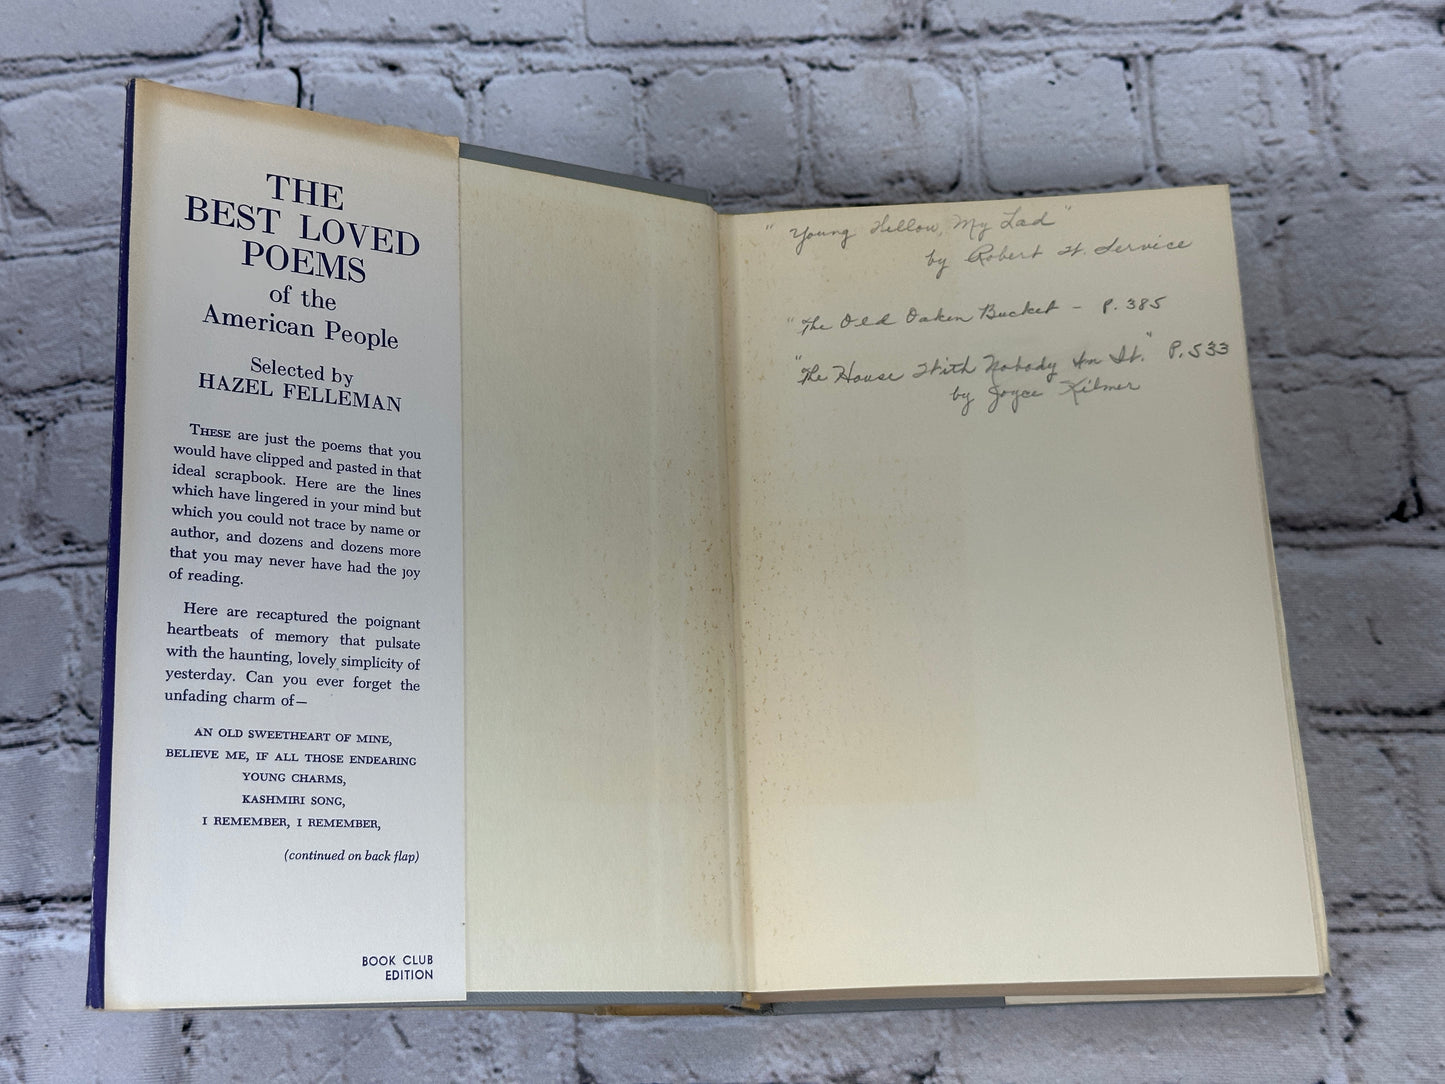 THE
BEST LOVED
POEMS
of the
American People
Selected by
HAZEL FELLEMAN
THESE are just the poems that you
would have clipped and pasted in that
ideal scrapbook. Here are the lines
which have lingered in your mind but
which you could not trace by name or
author, and dozens and dozens more
that you may never have had the joy
of reading.
Here are recaptured the poignant
heartbeats of memory that pulsate
with the haunting, lovely simplicity of
yesterday. Can you ever forget the
unfading charm of—
AN OLD SWEETHEART OF MINE,
BELIEVE ME, IF ALL THOSE ENDEARING
YOUNG CHARMS,
KASHMIRI SONG,
I REMEMBER, I REMEMBER,
(continued on back flap)
BOOK CLUB
EDITION
"Young Fellow, My Lad"
by Robert W. Service
"The Old Oaken Bucket - P. 385
"The House With Nobody In It." P. 533
by Joyce Kilmer